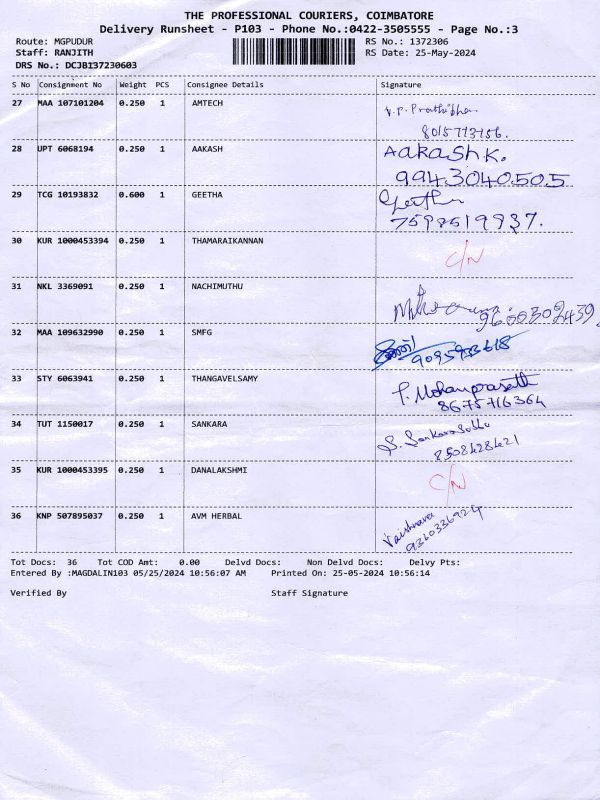 THE PROFESSIONAL COURIERS, COIMBATORE
Delivery Runsheet - P103 - Phone No.:0422-3505555 - Page No.:3
Route: MGPUDUR RS No.: 1372306
Staff: RANJITH RS Date: 25-May-2024
DRS No.: DCJBI37230603
S No Consignment No Weight PCS Consignee Details Signature
27 MAA 107101204 0.250 1 AMTECH V.P. Prathibha
8015773156.
28 UPT 6068194 0.250 1 AAKASH Aakash K.
9943040505
29 TCG 10193832 0.600 1 GEETHA Geetha
7598519937.
30 KUR 1000453394 0.250 1 THAMARAIKANNAN C/N
31 NKL 3369091 0.250 1 NACHIMUTHU
32 MAA 109632990 0.250 1 SMFG
33 STY 6063941 0.250 1 THANGAVELSAMY T. Mohanprasath
8675716364
34 TUT 1150017 0.250 1 SANKARA S. Sankara
8508428421
35 KUR 1000453395 0.250 1 DANALAKSHMI C/N
36 KNP 507895037 0.250 1 AVM HERBAL Vaishnavi
Tot Docs: 36 Tot COD Amt: 0.00 Delvd Docs: Non Delvd Docs: Delvy Pts:
Entered By :MAGDALIN103 05/25/2024 10:56:07 AM Printed On: 25-05-2024 10:56:14
Verified By Staff Signature